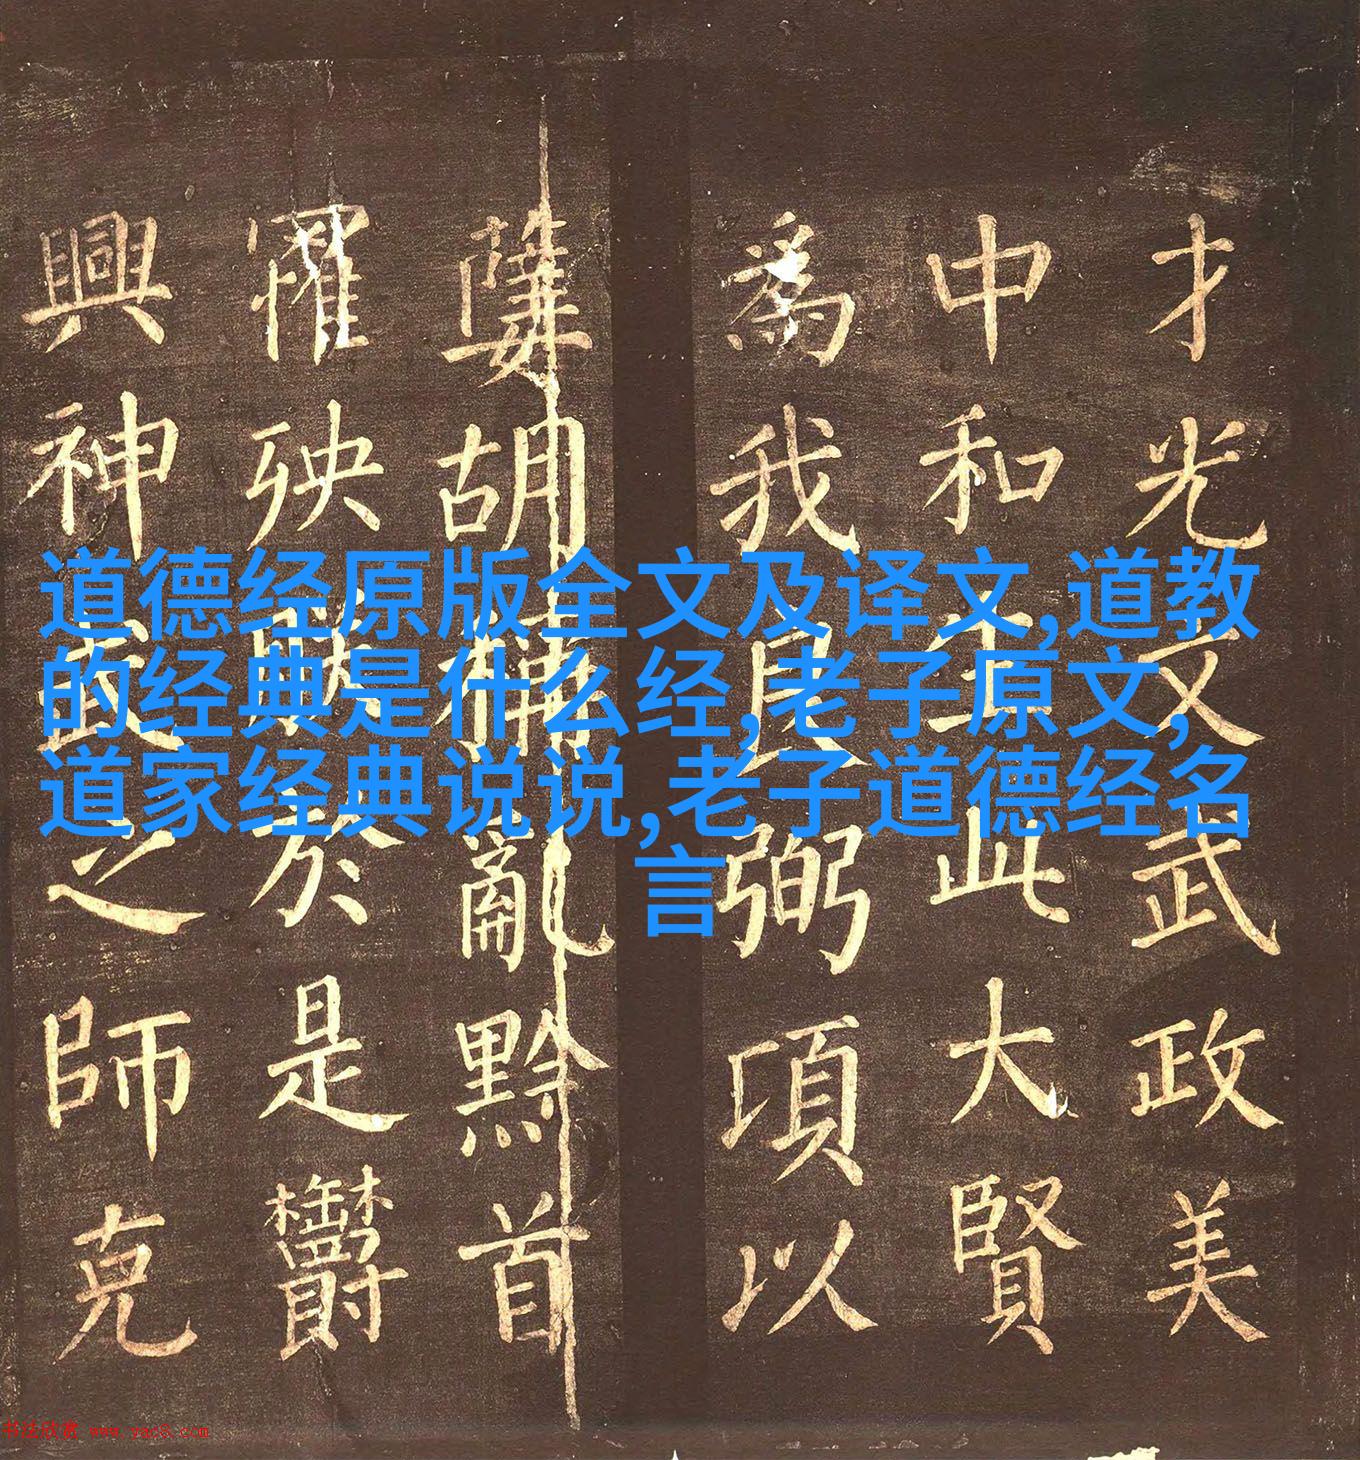 道德经原版全文及译文,道教
的经典是什么经,老子原文,
道家经典说说,老子道德经名
言
才光文武政美
中和生此大賢
爲我良弼項以
胡亂黔首
罹殃於是欝
興神武之師克
书法欣赏 www.yac8.com